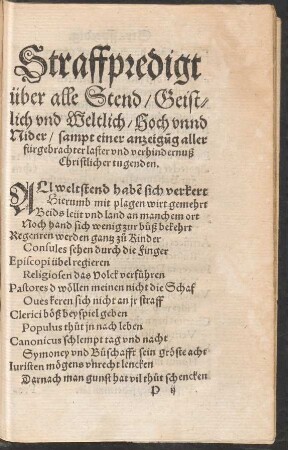 Straffpredigt
über alle Stend/Geist⸗
lich vnd Weltlich/Hoch vnnd
Nider/ sampt einer anzeigūg aller
fürgebrachter laster vnd verhindernuß
Christlicher tugenden.
ALl weltstend habē sich verkert
Hierumb mit plagen wirt gemehrt
Beids leüt vnd land an manchem ort
Noch hand sich wenig zur büß bekehrt
Regenten werden gantz zů Kinder
Consules sehen durch die Finger
Episcopi übel regieren
Religiosen das volck verführen
Pastores d wöllen meinen nicht die Schaf
Oues keren sich nicht an jr straff
Clerici böß beyspiel geben
Populus thůt jn nach leben
Canonicus schlempt tag vnd nacht
Symoney vnd Bůschafft sein gröste acht
Iuristen mögens vnrecht lencken
Darnach man gunst hat vil thůt schencken
P ij